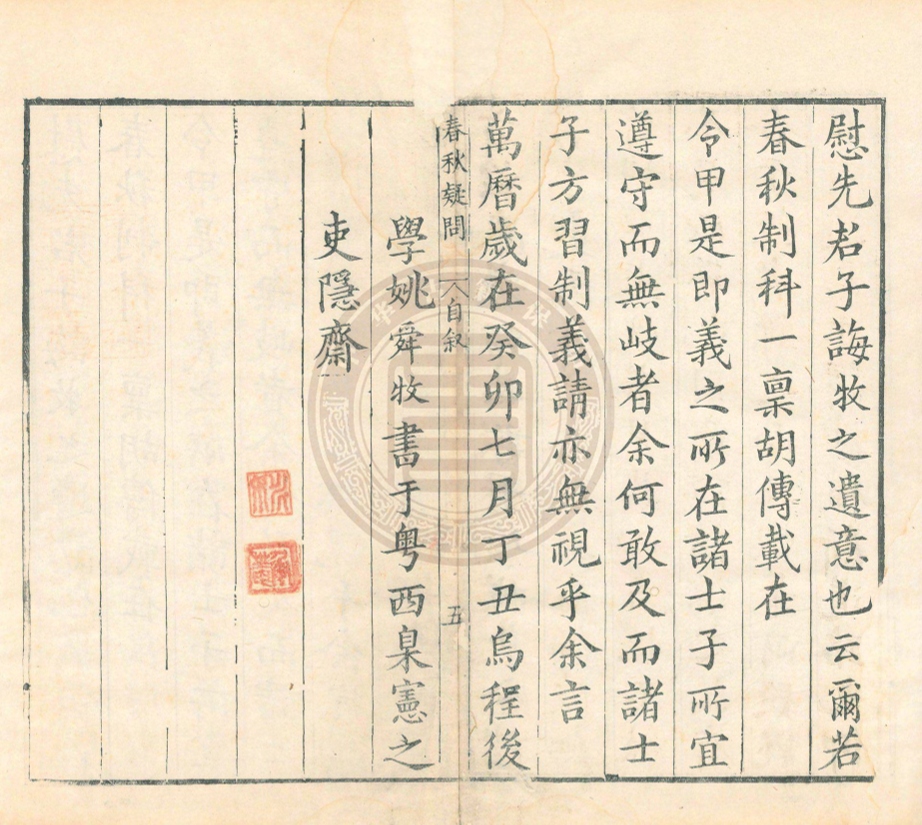 慰先君子誨牧之遺意也云爾若
春秋制科一禀胡傳載在
令甲是即義之所在諸士子所宜
遵守而無岐者余何敢及而諸士
子方習制義請亦無視乎余言
萬曆歲在癸卯七月丁丑烏程後
春秋疑問
自叙
五
學姚舜牧書于粤西臬憲之
吏隱齋